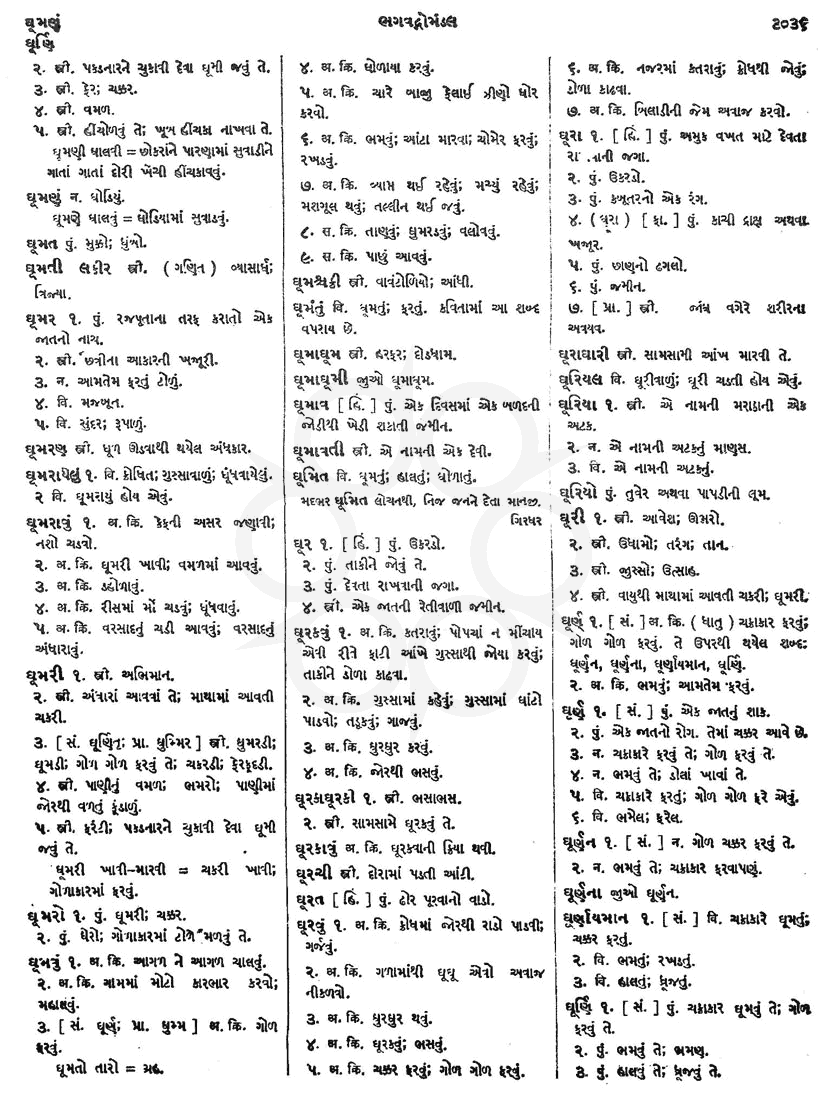 ઘૂમણું
ભગવદ્ગોમંડલ
૨૦૩૬
ઘૂર્ણિ
૨. સ્ત્રી. પકડનારને ચુકાવી દેવા ઘૂમી જવું તે.
૩. સ્ત્રી. ફેર; ચક્કર.
૪. સ્ત્રી. વમળ.
૫. સ્ત્રી. હીંચોળવું તે; ખૂબ હીંચકા નાખવા તે.
ઘૂમણી ઘાલવી = છોકરાંને પારણામાં સુવાડીને
ગાતાં ગાતાં દોરી ખેંચી હીંચકાવવું.
ઘૂમણું ન. ઘોડિયું.
ઘૂમણે ઘાલવું = ઘોડિયામાં સુવાડવું.
ઘૂમત પું. મુક્કો; ધુંબો.
ઘૂમતી લકીર સ્ત્રી. (ગણિત) વ્યાસાર્ધ;
ત્રિજ્યા.
ઘૂમર ૧. પું. રજપૂતાના તરફ કરાતો એક
જાતનો નાચ.
૨. સ્ત્રી. છત્રીના આકારની ખજૂરી.
૩. ન. આમતેમ ફરતું ટોળું.
૪. વિ. મજબૂત.
૫. વિ. સુંદર; રૂપાળું.
ઘૂમરણ સ્ત્રી. ધૂળ ઊડવાથી થયેલ અંધકાર.
ઘૂમરાયેલું ૧. વિ. ક્રોધિત; ગુસ્સાવાળું; ધૂંધવાયેલું.
૨ વિ. ઘૂમરાયું હોય એવું.
ઘૂમરાવું ૧. અ. ક્રિ. કેફની અસર જણાવી;
નશો ચડવો.
૨. અ. ક્રિ. ઘૂમરી ખાવી; વમળમાં આવવું.
૩. અ. ક્રિ. ડહોળાવું.
૪. અ. ક્રિ. રીસમાં મોં ચડવું; ધૂંધવાવું.
૫. અ. ક્રિ. વરસાદનું ચડી આવવું; વરસાદનું
અંધારાવું.
ઘૂમરી ૧. સ્ત્રી. અભિમાન.
૨. સ્ત્રી. અંધારાં આવવાં તે; માથામાં આવતી
ચકરી.
૩. [ સં. ઘૂર્ણિત; પ્રા. ઘુમ્મિર ] સ્ત્રી. ઘુમરડી;
ઘૂમડી; ગોળ ગોળ ફરવું તે; ચકરડી; ફેરફૂદડી.
૪. સ્ત્રી. પાણીનું વમળ; ભમરો; પાણીમાં
જોરથી વળતું કૂંડાળું.
૫. સ્ત્રી. ફરંટી; પકડનારને ચુકાવી દેવા ઘૂમી
જવું તે.
ઘૂમરી ખાવી-મારવી = ચકરી ખાવી;
ગોળાકારમાં ફરવું.
ઘૂમરો ૧. પું. ઘૂમરી; ચક્કર.
૨. પું. ઘેરો; ગોળાકારમાં ટોળે મળવું તે.
ઘૂમવું ૧. અ. ક્રિ. આગળ ને આગળ ચાલવું.
૨. અ. ક્રિ. ગામમાં મોટો કારભાર કરવો;
મહાલવું.
૩. [ સં. ઘૂર્ણ; પ્રા. ઘુમ્મ ] અ. ક્રિ. ગોળ
ફરવું.
ઘૂમતો તારો = ગ્રહ.
૪. અ. ક્રિ. ઘોળાયા કરવું.
૫. અ. ક્રિ. ચારે બાજુ ફેલાઈ ઝીણો ઘોર
કરવો.
૬. અ. ક્રિ. ભમવું; આંટા મારવા; ચોમેર ફરવું;
રખડવું.
૭. અ. ક્રિ. વ્યાપ્ત થઈ રહેવું; મચ્યું રહેવું;
મશગૂલ થવું; તલ્લીન થઈ જવું.
૮. સ. ક્રિ. તાણવું; ઘુમરડવું; વલોવવું.
૯. સ. ક્રિ. પાછું આવવું.
ઘૂમશ્ચક્રી સ્ત્રી. વાવંટોળિયો; આંધી.
ઘૂમંતું વિ. ઘૂમતું; ફરતું. કવિતામાં આ શબ્દ
વપરાય છે.
ઘૂમાઘૂમ સ્ત્રી. હરફર; દોડધામ.
ઘૂમાઘૂમી જુઓ ઘૂમાઘૂમ.
ઘૂમાવ [ હિં. ] પું. એક દિવસમાં એક બળદની
જોડીથી ખેડી શકાતી જમીન.
ઘૂમાવતી સ્ત્રી. એ નામની એક દેવી.
ઘૂમિત વિ. ઘૂમતું; હાલતું; ઘોળાતું.
મદભર ઘૂમિત લોચનથી, નિજ જનને દેતા માનજી.
ગિરધર
ઘૂર ૧. [ હિં. ] પું. ઉકરડો.
૨. પું. તાકીને જોવું તે.
૩. પું. દેવતા રાખવાની જગા.
૪. સ્ત્રી. એક જાતની રેતીવાળી જમીન.
ઘૂરકવું ૧. અ. ક્રિ. કતરાવું; પોપચાં ન મીંચાય
એવી રીતે ફાટી આંખે ગુસ્સાથી જોયા કરવું;
તાકીને ડોળા કાઢવા.
૨. અ. ક્રિ. ગુસ્સામાં કહેવું; ગુસ્સામાં ઘાંટો
પાડવો; તડૂકવું; ગાજવું.
૩. અ. ક્રિ. ઘુરઘુર કરવું.
૪. અ. ક્રિ. જોરથી ભસવું.
ઘૂરકાઘૂરકી ૧. સ્ત્રી. ભસાભસ.
૨. સ્ત્રી. સામસામે ઘૂરકવું તે.
ઘૂરકાવું અ. ક્રિ. ઘૂરકવાની ક્રિયા થવી.
ઘૂરચી સ્ત્રી. દોરામાં પડતી આંટી.
ઘૂરત [ હિં. ] પું. ઢોર પૂરવાનો વાડો.
ઘૂરવું ૧. અ. ક્રિ. ક્રોધમાં જોરથી રાડો પાડવી;
ગર્જવું.
૨. અ. ક્રિ. ગળામાંથી ઘૂઘૂ એવો અવાજ
નીકળવો.
૩. અ. ક્રિ. ઘુરઘુર થવું.
૪. અ. ક્રિ. ઘૂરકવું; ભસવું.
૫. અ. ક્રિ. ચક્કર ફરવું; ગોળ ગોળ ફરવું.
૬. અ. ક્રિ. નજરમાં કતરાવું; ક્રોધથી જોવું;
ડોળા કાઢવા.
૭. અ. ક્રિ. બિલાડીની જેમ અવાજ કરવો.
ઘૂરા ૧. [ હિં. ] પું. અમુક વખત માટે દેવતા
જગા.
૨. પું. ઉકરડો.
૩. પું. કબૂતરનો એક રંગ.
૪. (ઘૂરા) [ ફા. ] પું. કાચી દ્રાક્ષ અથવા
ખજૂર.
૫. પું. છાણનો ઢગલો.
૬. પું. જમીન.
૭. [ પ્રા. ] સ્ત્રી. જાંઘ વગેરે શરીરના
અવયવ.
ઘૂરાઘારી સ્ત્રી. સામસામી આંખ મારવી તે.
ઘૂરિયલ વિ. ઘૂરીવાળું; ઘૂરી ચડતી હોય એવું.
ઘૂરિયા ૧. સ્ત્રી. એ નામની મરાઠાની એક
અટક.
૨. ન. એ નામની અટકનું માણસ.
૩. વિ. એ નામની અટકનું.
ઘૂરિયો પું. તુવેર અથવા પાપડીની લૂમ.
ઘૂરી ૧. સ્ત્રી. આવેશ; ઊભરો.
૨. સ્ત્રી. ઉધામો; તરંગ; તાન.
૩. સ્ત્રી. જુસ્સો; ઉત્સાહ.
૪. સ્ત્રી. વાયુથી માથામાં આવતી ચકરી; ઘૂમરી.
ઘૂર્ણ્ ૧. [ સં. ] અ. ક્રિ. (ધાતુ) ચક્રાકાર ફરવું;
ગોળ ગોળ ફરવું. તે ઉપરથી થયેલ શબ્દ:
ઘૂર્ણન, ઘૂર્ણના, ઘૂર્ણાયમાન, ઘૂર્ણિ.
૨. અ. ક્રિ. ભમવું; આમતેમ ફરવું.
ઘૂર્ણ ૧. [ સં. ] પું. એક જાતનું શાક.
૨. પું. એક જાતનો રોગ. તેમાં ચક્કર આવે છે.
૩. ન. ચક્રાકારે ફરવું તે; ગોળ ફરવું તે.
૪. ન. ભમવું તે; ડોલાં ખાવાં તે.
૫. વિ. ચક્રાકારે ફરતું; ગોળ ગોળ ફરે એવું.
૬. વિ. ભમેલ; ફરેલ.
ઘૂર્ણન ૧. [ સં. ] ન. ગોળ ચક્કર ફરવું તે.
૨. ન. ભમવું તે; ચક્રાકાર ફરવાપણું.
ઘૂર્ણના જુઓ ઘૂર્ણન.
ઘૂર્ણાયમાન ૧. [ સં. ] વિ. ચક્રાકારે ઘૂમતું;
ચક્કર ફરતું.
૨. વિ. ભમતું; રખડતું.
૩. વિ. હાલતું; ધ્રૂજતું.
ઘૂર્ણિ ૧. [ સં. ] પું. ચક્રાકાર ઘૂમવું તે; ગોળ
ફરવું તે.
૨. પું. ભમવું તે; ભ્રમણ.
૩. પું. હાલવું તે; ધ્રૂજવું તે.